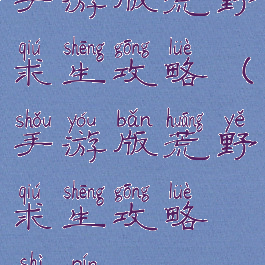 手游版荒野
qiú shēng gōng lüè
求生攻略（
shǒu yóu bǎn huāng yě
手游版荒野
qiú shēng gōng lüè
求生攻略
shì pín